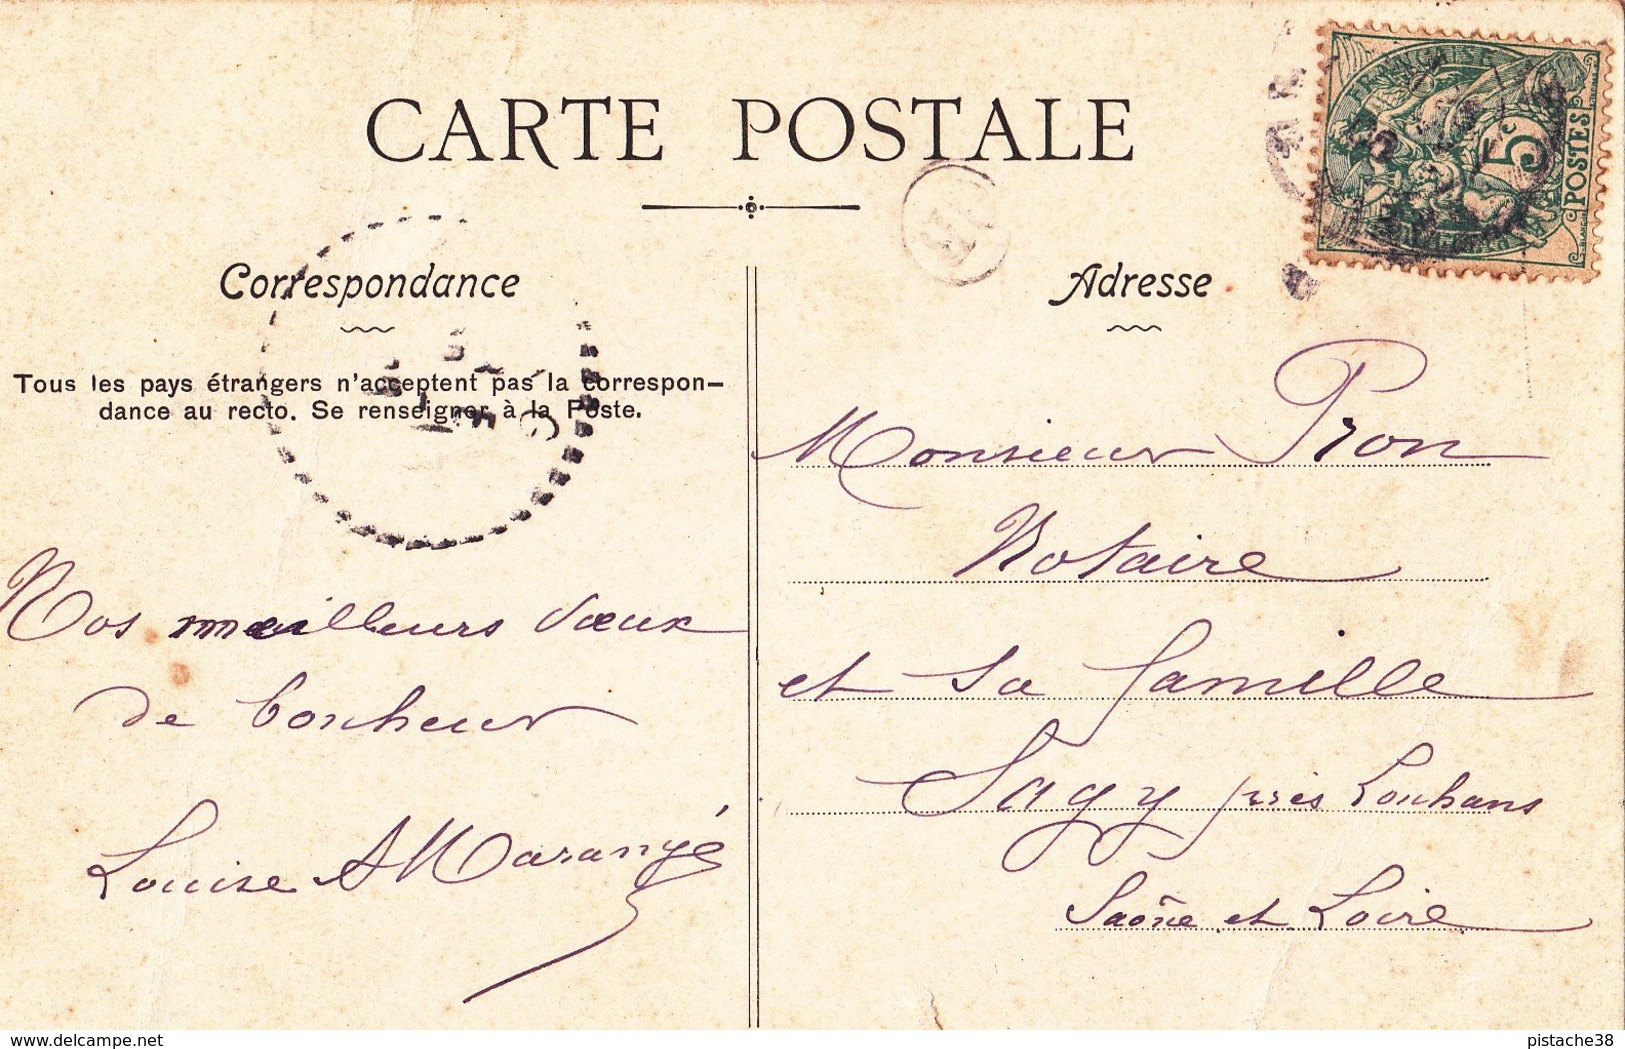 CARTE POSTALE
Correspondance
Tous les pays étrangers n'acceptent pas la correspon-
dance au recto. Se renseigner à la Poste.
Nos meilleurs vœux
de bonheur
Louise Marangé
Adresse
5c
POSTES
Monsieur Pron
Notaire
et sa famille
Sagy près Louhans
Saône et Loire
delcampe.net
pistache38